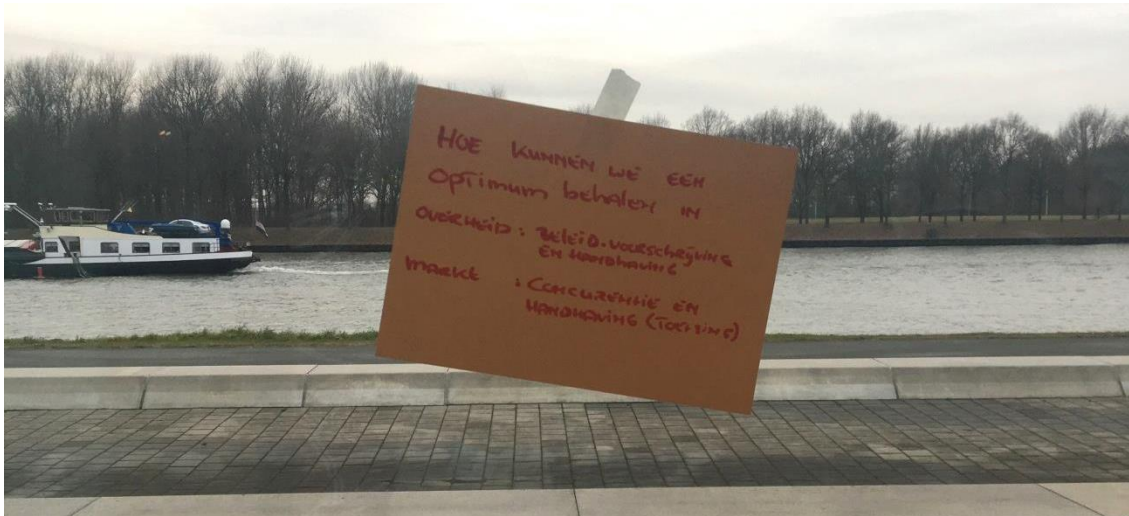 HOE KUNNEN WE EEN
OPTIMUM behalen IN
OVERHEID : BELEID-VOORSCHRIJVING
EN HANDHAVING
MARKT : CONCURENTIE EN
HANDHAVING (TOETSING)